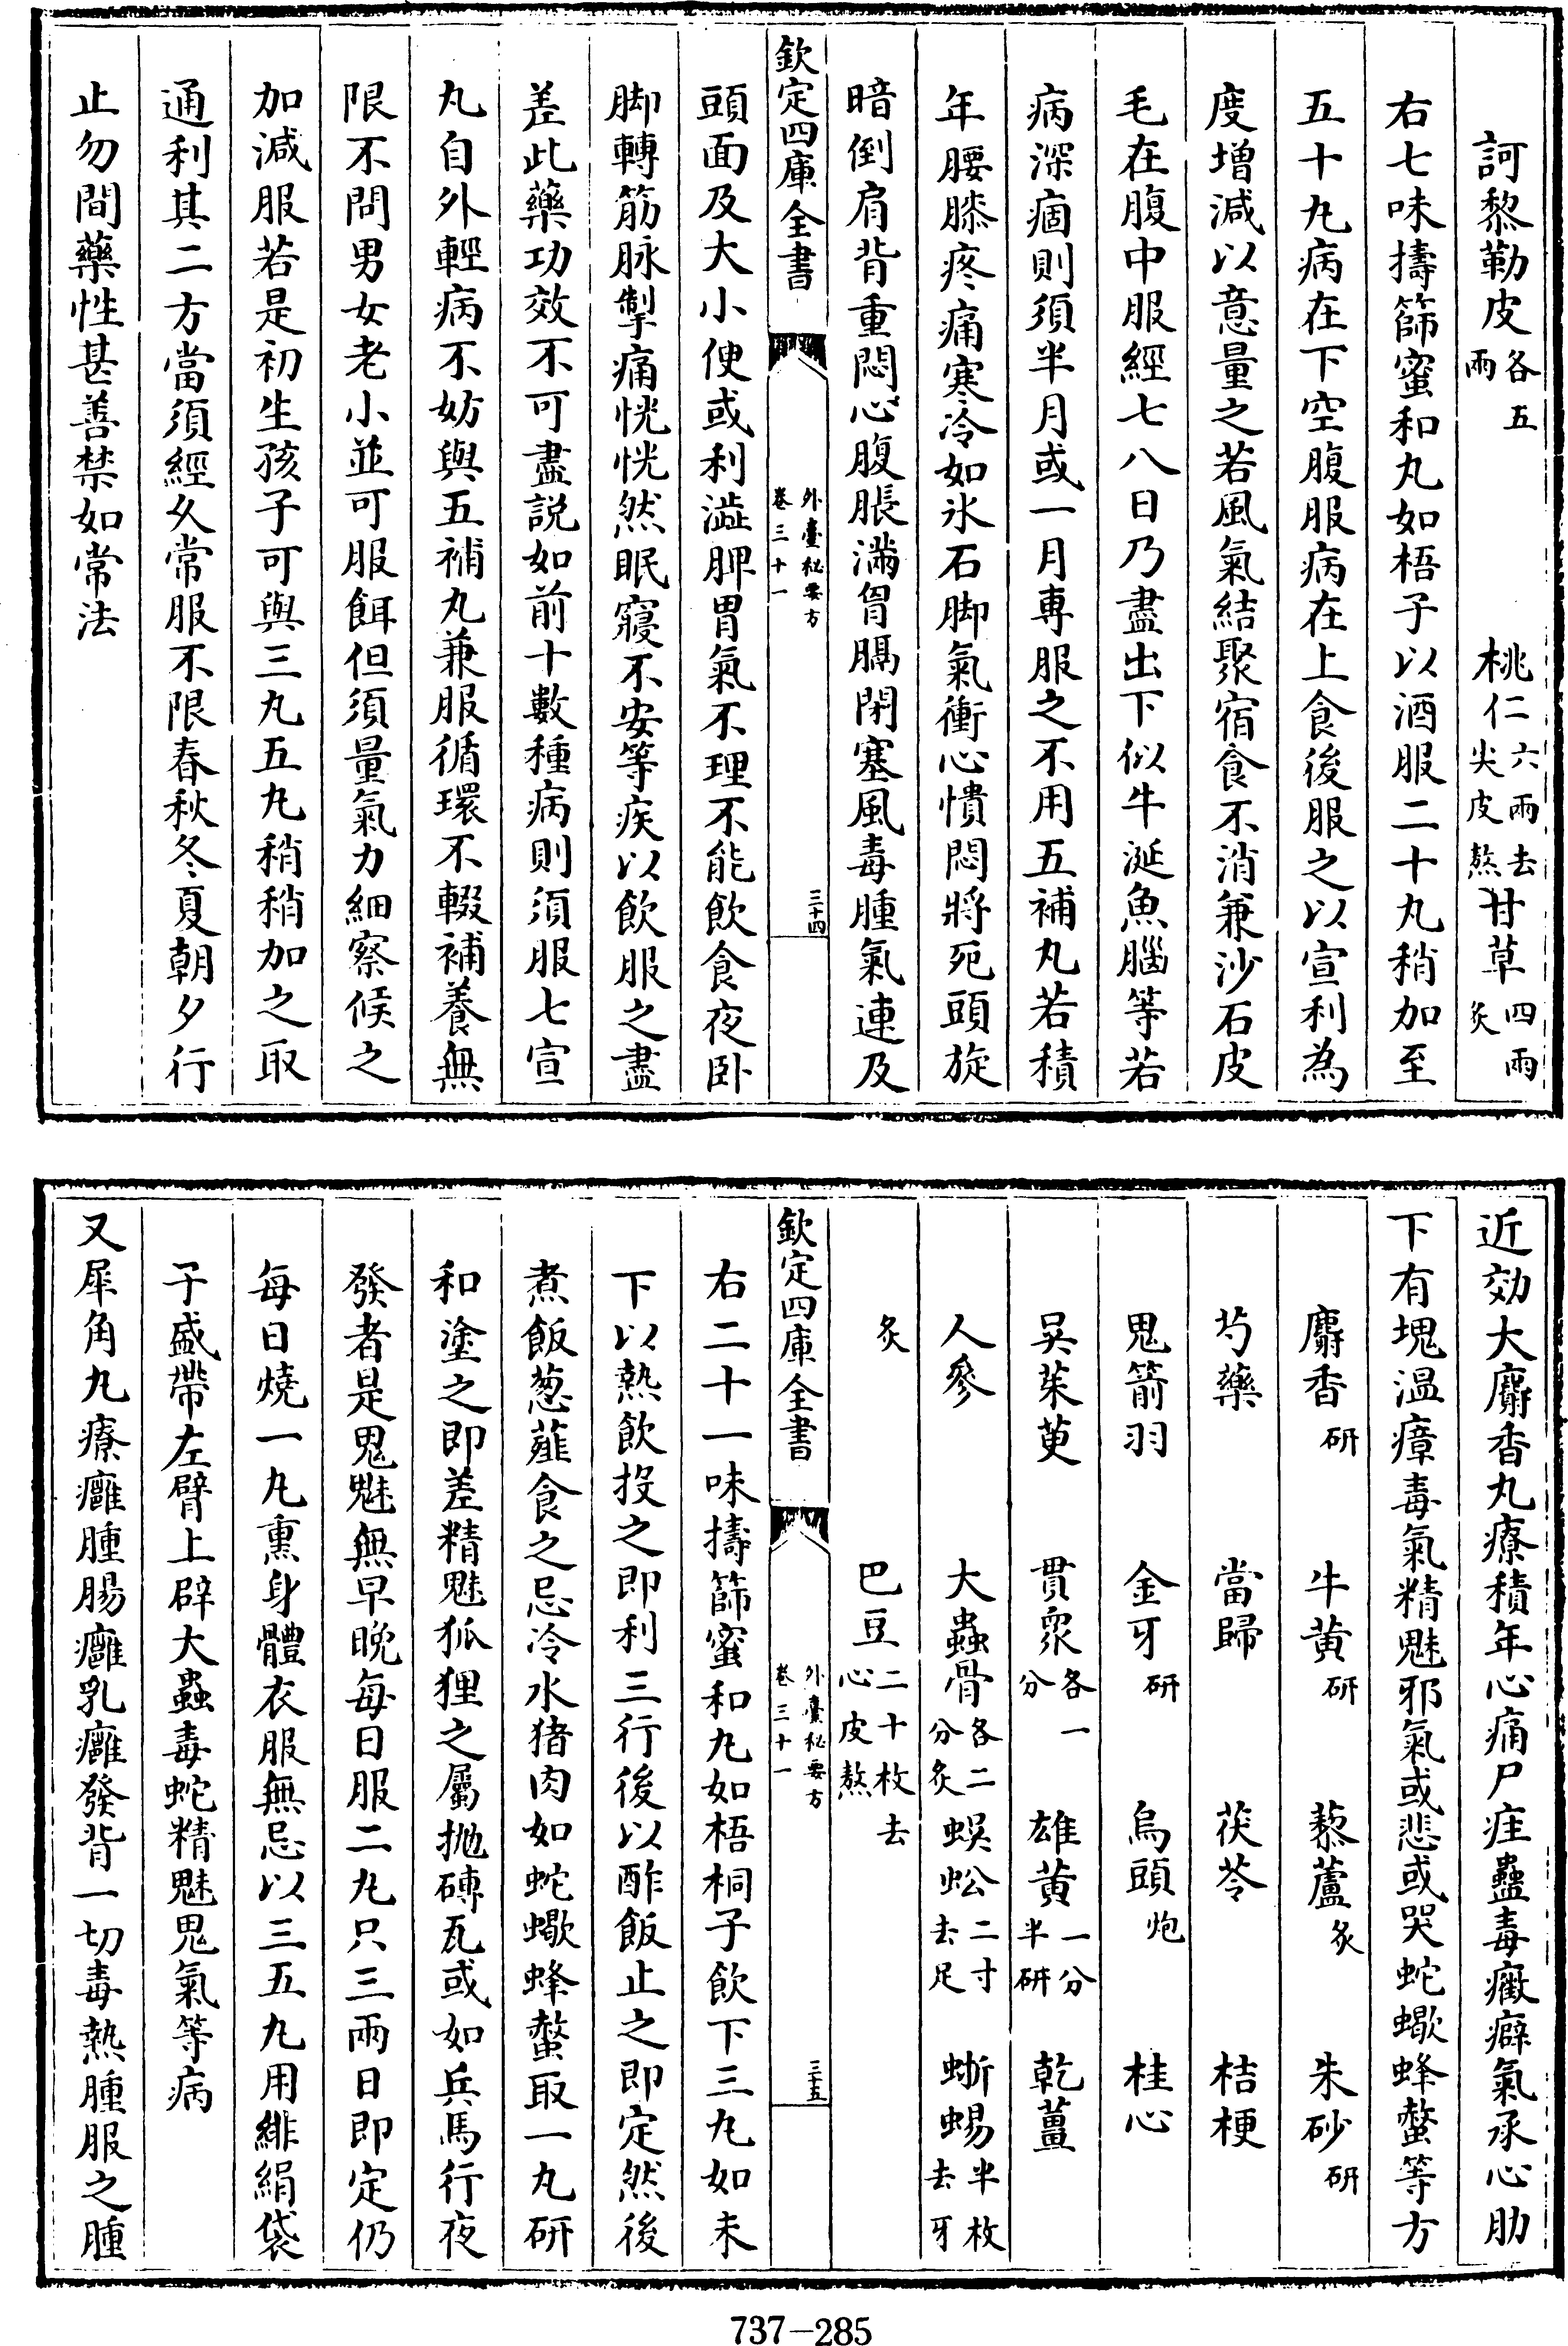 訶黎勒皮各五兩　桃仁六兩去尖皮熬甘草四兩炙
右七味擣篩蜜和丸如梧子以酒服二十丸稍加至
五十丸病在下空腹服病在上食後服之以宣利為
度增減以意量之若風氣結聚宿食不消兼沙石皮
毛在腹中服經七八日乃盡出下似牛涎魚腦等若
病深痼則須半月或一月專服之不用五補丸若積
年腰膝疼痛寒冷如氷石脚氣衝心憒悶將死頭旋
暗倒肩背重悶心腹脹滿胷膈閉塞風毒腫氣連及
欽定四庫全書　外臺秘要方卷三十一　三十四
頭面及大小便或利澁脾胃氣不理不能飲食夜卧
脚轉筋脉掣痛恍恍然眠寢不安等疾以飲服之盡
差此藥功效不可盡說如前十數種病則須服七宣
丸自外輕病不妨與五補丸兼服循環不輟補養無
限不問男女老小並可服餌但須量氣力細察候之
加減服若是初生孩子可與三丸五丸稍稍加之取
通利其二方當須經久常服不限春秋冬夏朝夕行
止勿間藥性甚善禁如常法
近効大麝香丸療積年心痛尸疰蠱毒癥癖氣承心肋
下有塊溫瘴毒氣精魅邪氣或悲或哭蛇蠍蜂螫等方
麝香研　牛黄研　藜蘆炙　朱砂研
芍藥　當歸　茯苓　桔梗
鬼箭羽　金牙研　烏頭炮　桂心
吳茱萸　貫衆各一分　雄黄一分半研　乾薑
人參　大蟲骨各二分炙　蜈蚣二寸去足　蜥蜴半枚去牙
炙　巴豆二十枚去心皮熬
欽定四庫全書　外臺秘要方卷三十一　三十五
右二十一味擣篩蜜和丸如梧桐子飲下三丸如未
下以熱飲投之即利三行後以酢飯止之即定然後
煮飯葱薤食之忌冷水猪肉如蛇蠍蜂螫取一丸研
和塗之即差精魅狐狸之屬抛磚瓦或如兵馬行夜
發者是鬼魅無早晚每日服二丸只三兩日即定仍
每日燒一丸熏身體衣服無忌以三五丸用緋絹袋
子盛帶左臂上辟大蟲毒蛇精魅鬼氣等病
又犀角丸療癰腫腸癰乳癰發背一切毒熱腫服之腫
737-285